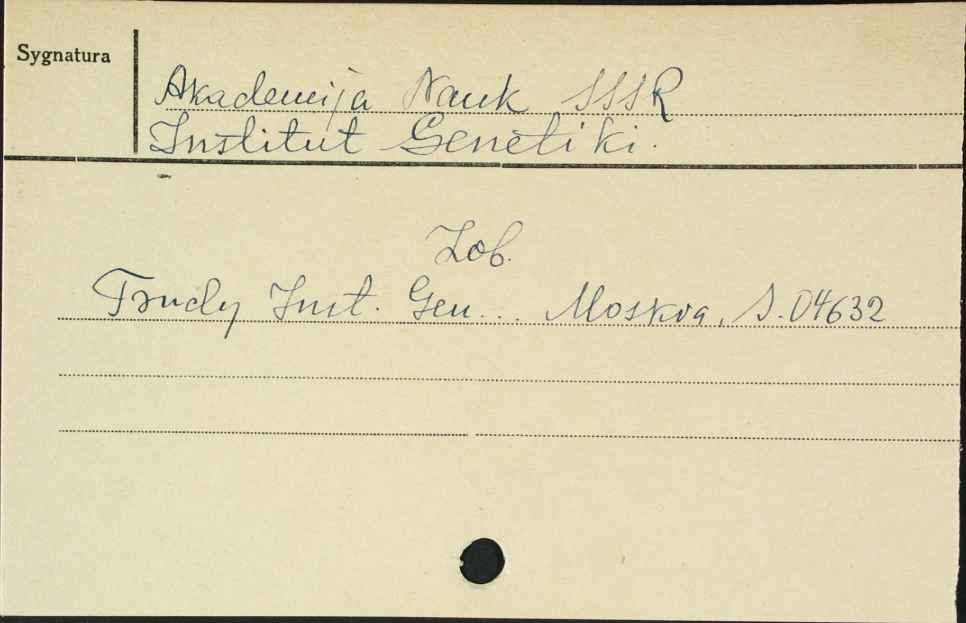 Sygnatura
Akademija Nauk SSSR
Institut Genetiki.
Zob.
Trudy Inst. Gen... Moskva, S.04632